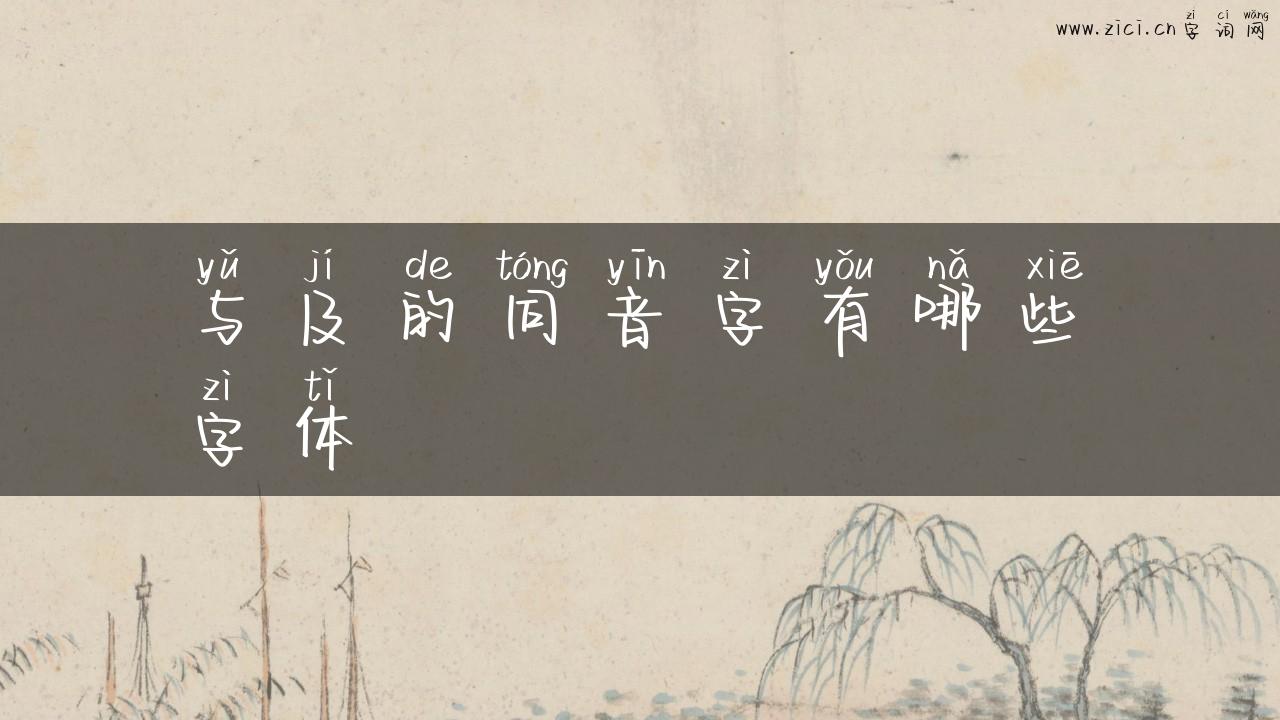 zì cí wǎng
www.zici.cn 字 词 网
yǔ jí de tóng yīn zì yǒu nǎ xiē
与 及 的 同 音 字 有 哪 些
zì tǐ
字 体